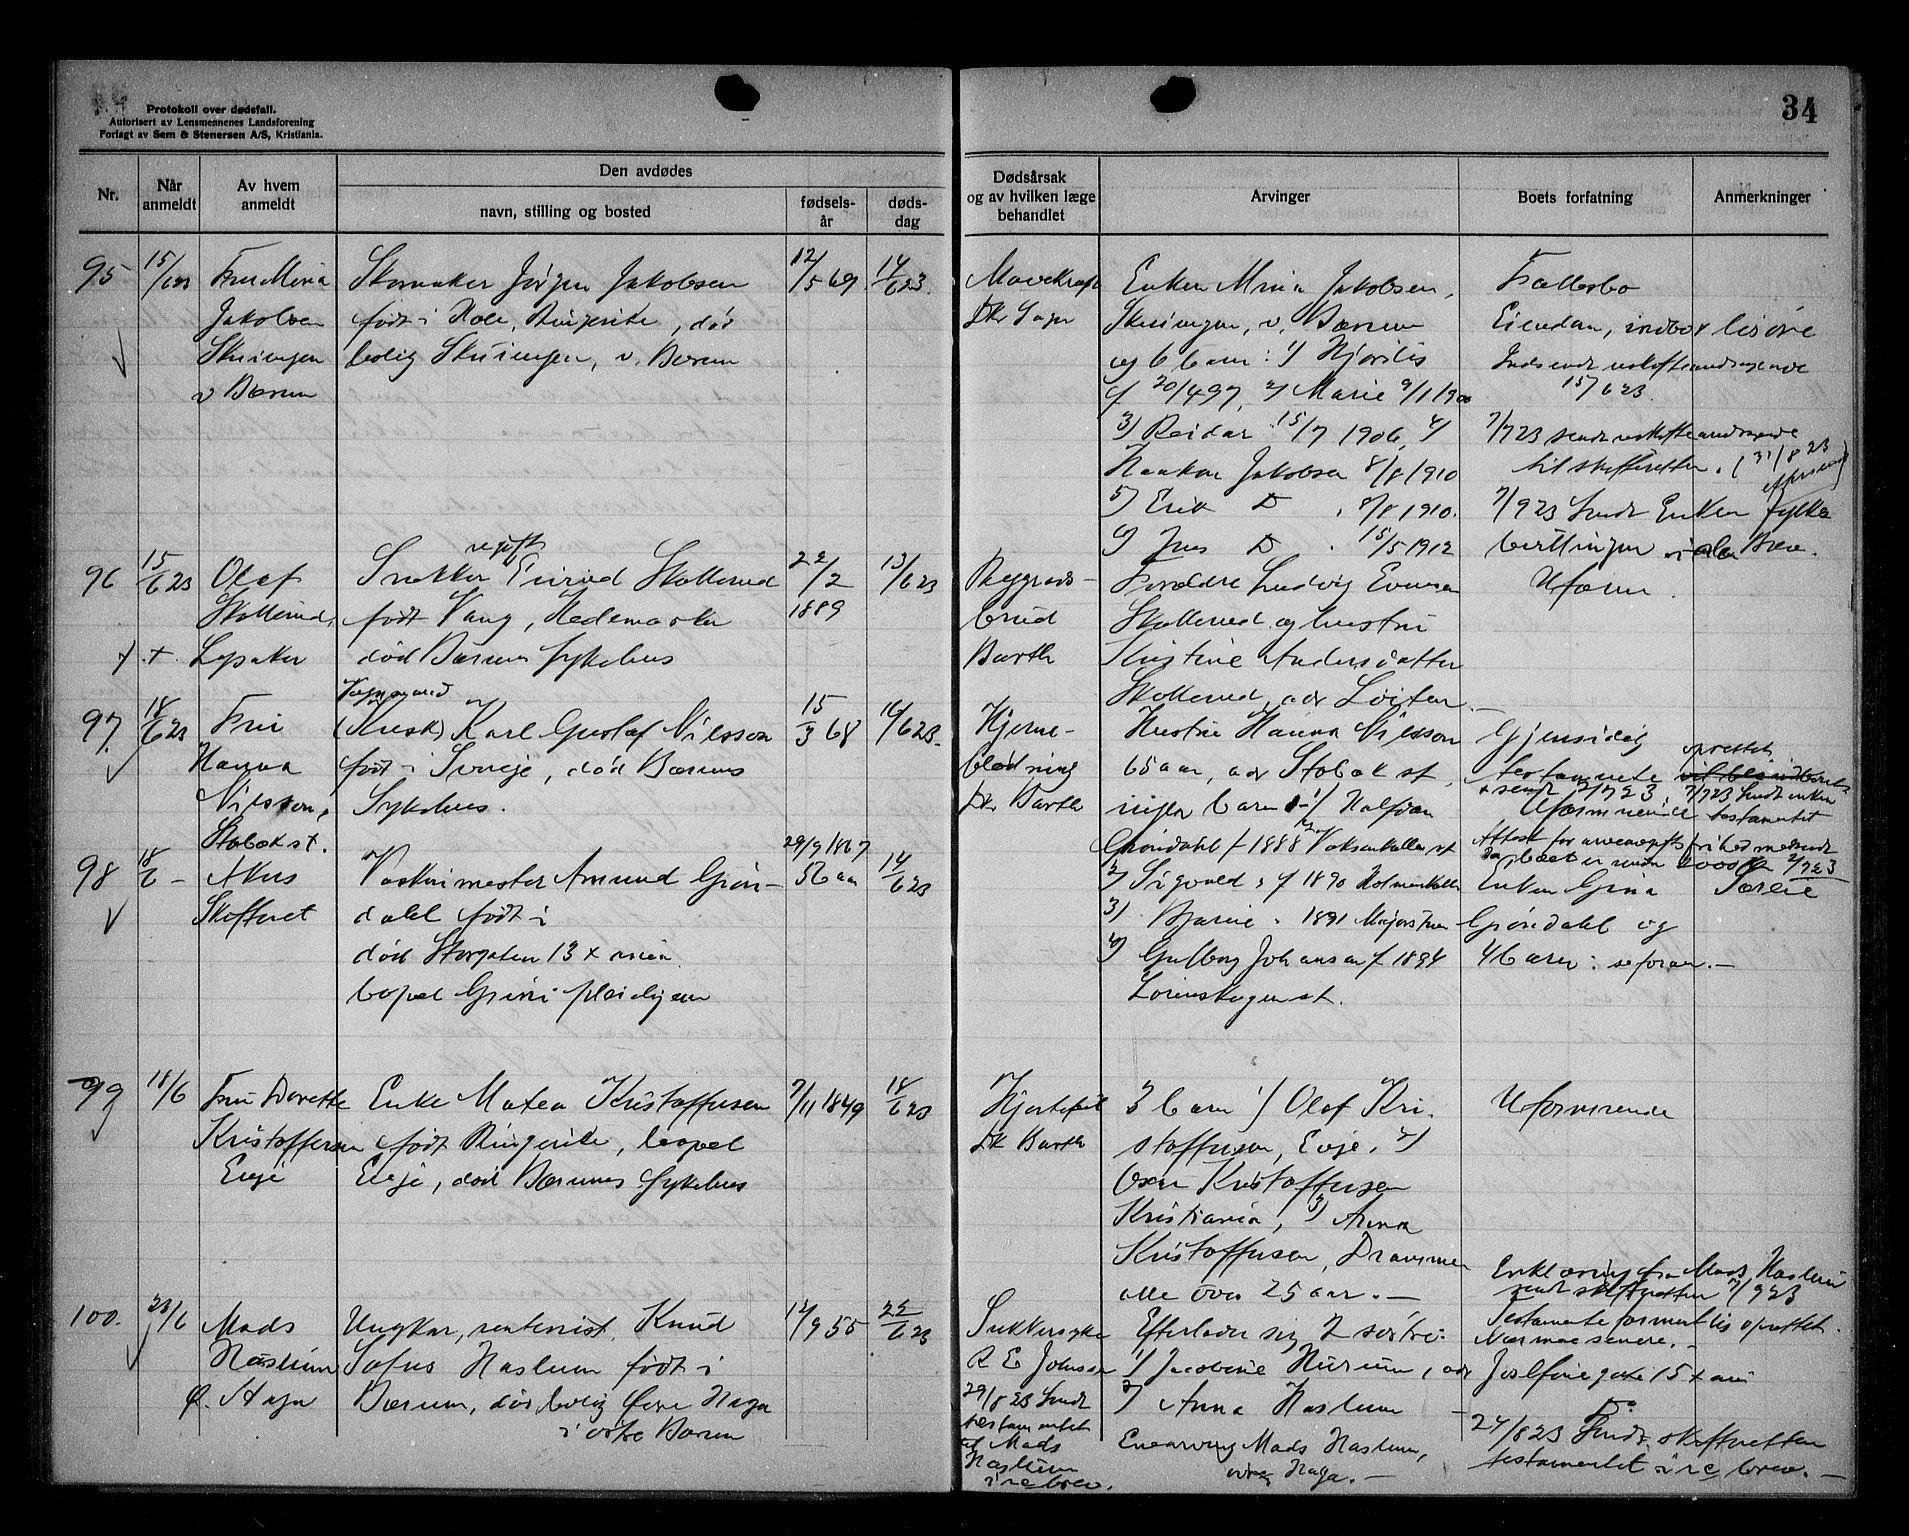 Protokoll over dødsfall.
Autorisert av Lensmennenes Landsforening
Forlagt av Sem & Stenersen A/S, Kristiania.
34
Nr.
Når anmeldt
Av hvem anmeldt
Den avdødes
navn, stilling og bosted
fødsels-år
døds-dag
Dødsårsak og av hvilken læge behandlet
Arvinger
Boets forfatning
Anmerkninger
95 15/6 23 Fru Mina Skomaker Jørgen Jakobsen 12/5 69 14/6 23.
Jakobsen født i Hole, Ringerike, død
bolig v. Bærum
v Bærum
Mavekræft Enken Mina Jakobsen, Fællesbo
Dr. v. Bærum Eiendom, indbo
og 6 barn: 1/
f 20/4 97, 2/ Marie 9/1 1900 15/6 23.
3) Reidar 15/7 1906, 4/ 7/7 23 sendt
Haakon Jakobsen 8/8 1910 til skifteretten. (31/8 23
5) Erik D 8/8 1910. 7/9 23 Sendt Enken
D 15/5 1912 Brev.
96 15/6 23 Olaf Snekker Skollerud 22/2 1889 13/6 23
Skollerud, født Vang, Hedemarken
Lysaker død Bærums Sykehus
Rygrads- Forældre Ludvig Evensen Uformuende.
brud Skollerud og hustru
Barth Kristine Andersdatter
Skollerud, adr Løiten.
97. 18/6 23 Fru (Kusk) Karl Gustaf Nilsson 15/3 68 16/6 23.
Hanna født i Sverige, død Bærums
Nilsson, Sykehus.
Stabæk st.
Hjerne- Hustru Hanna Nilsson Gjensidig
blødning 65 aar, adr Stabæk st, testamente oprettet
Dr. Barth ingen barn 7/7 23 Sendt enken
Uformuende testamentet
98 18/6 - Akers Amund Grøn- 29/9 1867 56 aar 14/6 23
Skifteret dahl født i
død Storgaten 13 Kr.ania
bopel Grini pleiehjem
1/ Halfdan
Grøndahl f 1888
2) Sigvald f 1890 Enken Gina Særeie
3) Bjarne 1891 Majorstuen Grøndahl og
4) Johansen f 1894 4 barn: se foran.-
st.
99 18/6 Fru Dorette Enke Matea Kristoffersen 7/11 1849 18/6 23
Kristoffersen født Ringerike, bopel
Evje Evje, død Bærums Sykehus
Hjertefeil 3 barn 1/ Olaf Kri- Uformuende
Dr Barth stoffersen, Evje, 2/
Kristoffersen
Kristiania, 3) Anna
Kristoffersen, Drammen
alle over 25 aar.-
Erklæring fra Mads Haslum
sendt skifteretten 7/9 23
100. 23/6 Mads Ungkar, rentenist Knud 12/9 55 22/6 23
Haslum Sofus Haslum født i
Ø. Haga Bærum, død bolig Øvre Haga
i østre Bærum
Sukkersyke Efterlader sig 2 søstre: Testamente oprettet.
Nærmere senere.-
1/ Jacobine Hurum, adr Josefinegate 15 Kr.ania
29/8 23 Sendt 2/ Anna Haslum - Do
testamentet Enearving Mads Haslum, 27/8 23 Sendt skifteretten
til Mads øvre Haga.- testamentet i rc brev.-
Haslum
i rc brev.